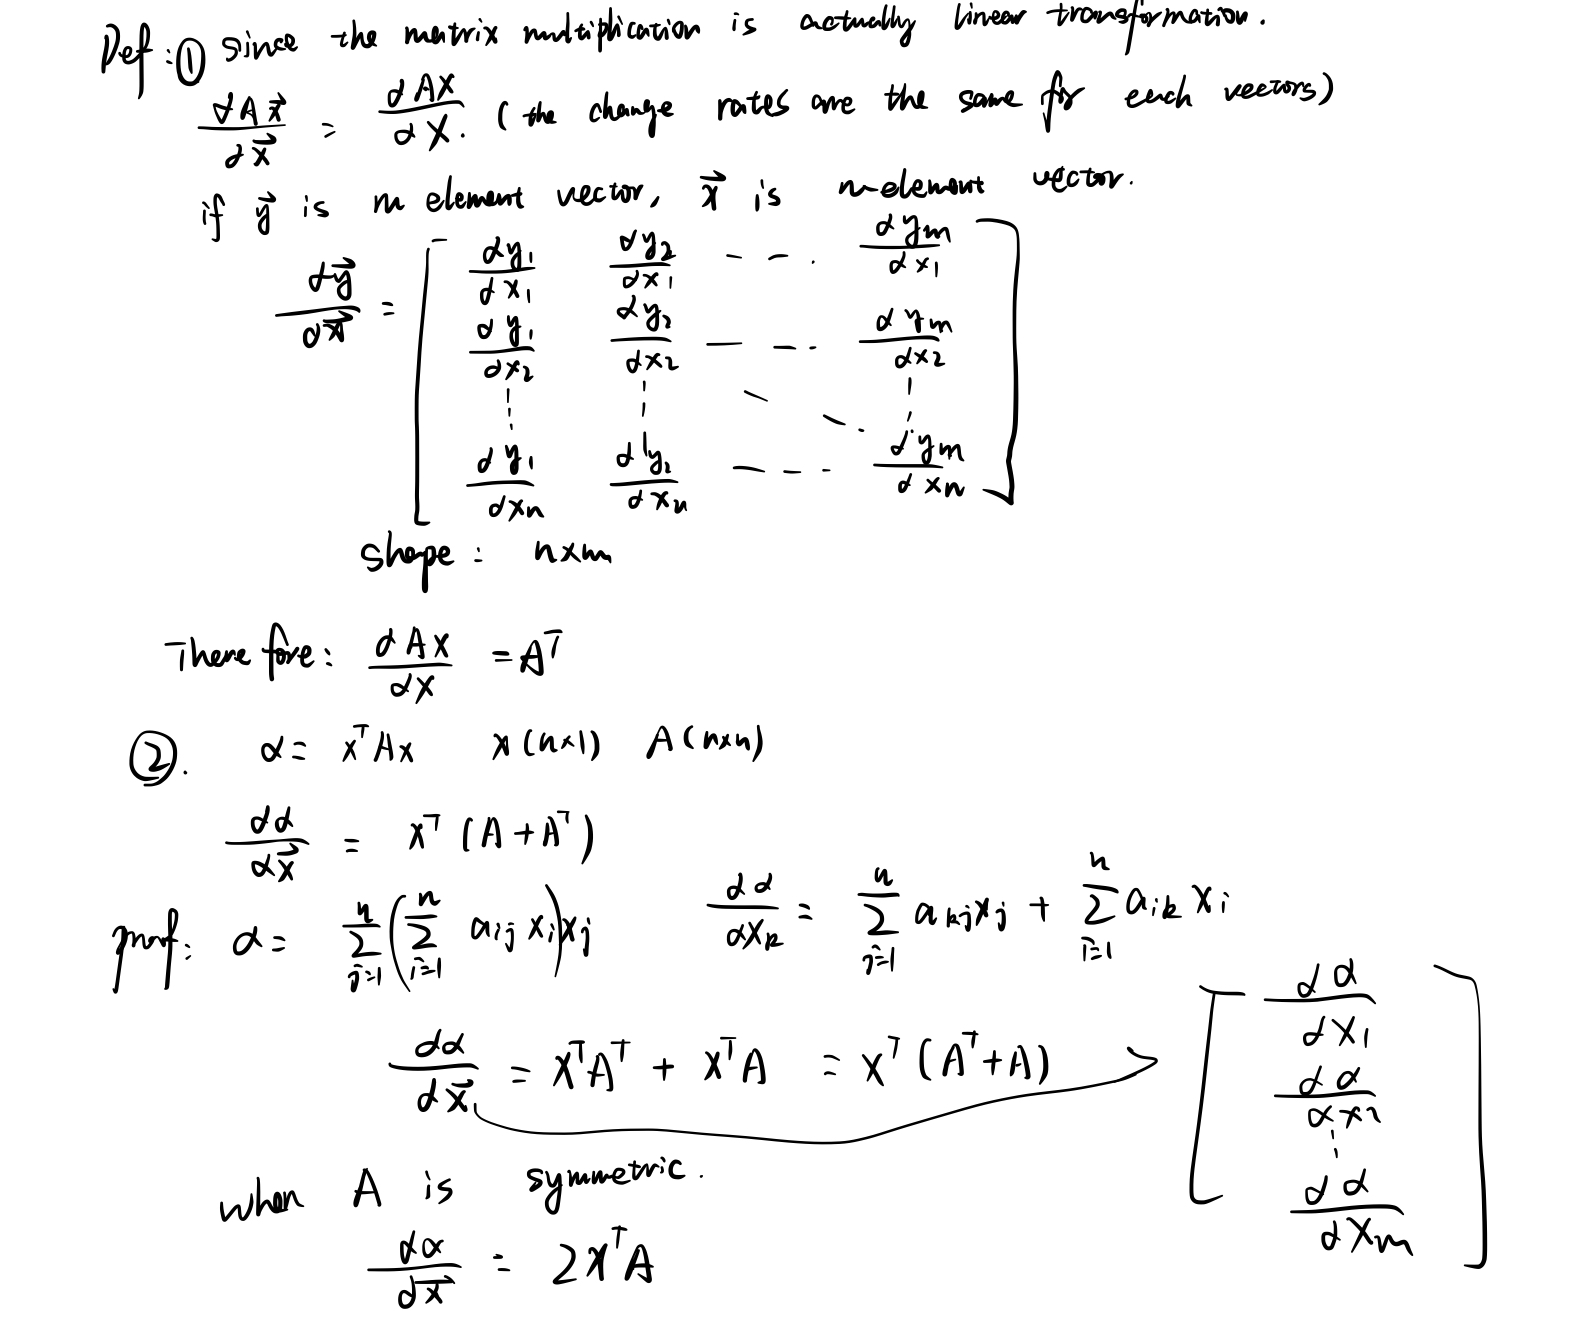 Def: ① since the matrix multiplication is actually linear transformation.
dAx⃗/dx⃗ = dAX/dX. (the change rates are the same for each vectors)
if y⃗ is m element vector, x⃗ is n-element vector.
dy⃗/dx⃗ = [ dy₁/dx₁ dy₂/dx₁ --- dyₘ/dx₁
dy₁/dx₂ dy₂/dx₂ --- dyₘ/dx₂
dy₁/dxₙ dy₂/dxₙ --- dyₘ/dxₙ ]
shape: n×m
Therefore: dAx/dx = Aᵀ
②. α = xᵀAx x(n×1) A(n×n)
dα/dx⃗ = xᵀ(A+Aᵀ)
proof: α = ∑ⁿⱼ₌₁(∑ⁿᵢ₌₁ aᵢⱼ xᵢ)xⱼ dα/dxₖ = ∑ⁿⱼ₌₁ aₖⱼxⱼ + ∑ⁿᵢ₌₁ aᵢₖ xᵢ
dα/dx⃗ = xᵀAᵀ + xᵀA = xᵀ(Aᵀ+A) [ dα/dx₁
dα/dx₂
dα/dxₘ ]
when A is symmetric.
dα/dx⃗ = 2xᵀA